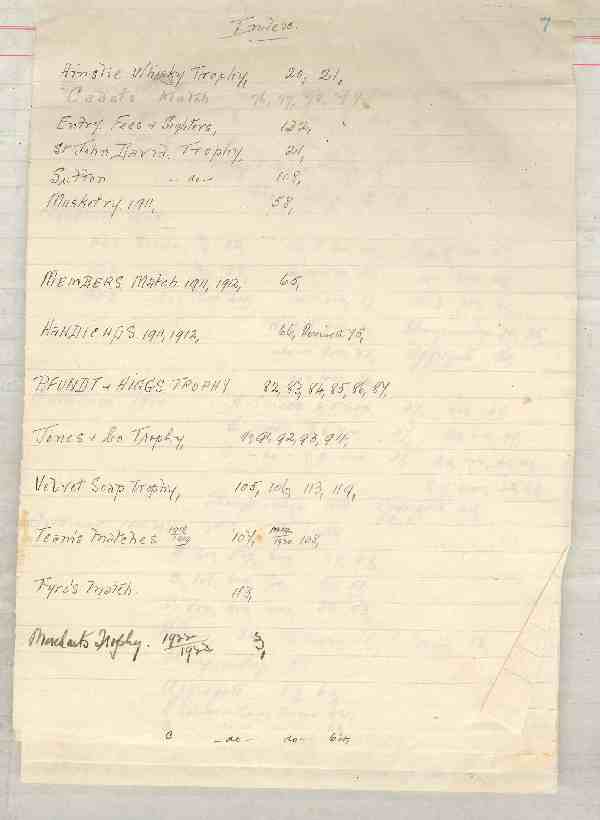 Index.
7
Ainslie Whisky Trophy, 20, 21,
Cadets Match 76, 77,
Entry Fees & Sighters, 122,
Sr John David. Trophy, 21,
Sutton -do- 108,
Musketry. 1911, 58,
MEMBERS Match 1911, 1912, 65,
HANDICAPS 1911, 1912, 66, Revised 75,
& HIGGS TROPHY 82, 83, 84, 85, 86, 87,
Jones & Co Trophy, 92, 93, 94,
Velvet Soap Trophy, 105, 106, 113, 119,
Team's matches 1918 1919 107, 1919 1920 108,
Tyro's match. 113,
Merchants Trophy. 1922 3,
-do- do-